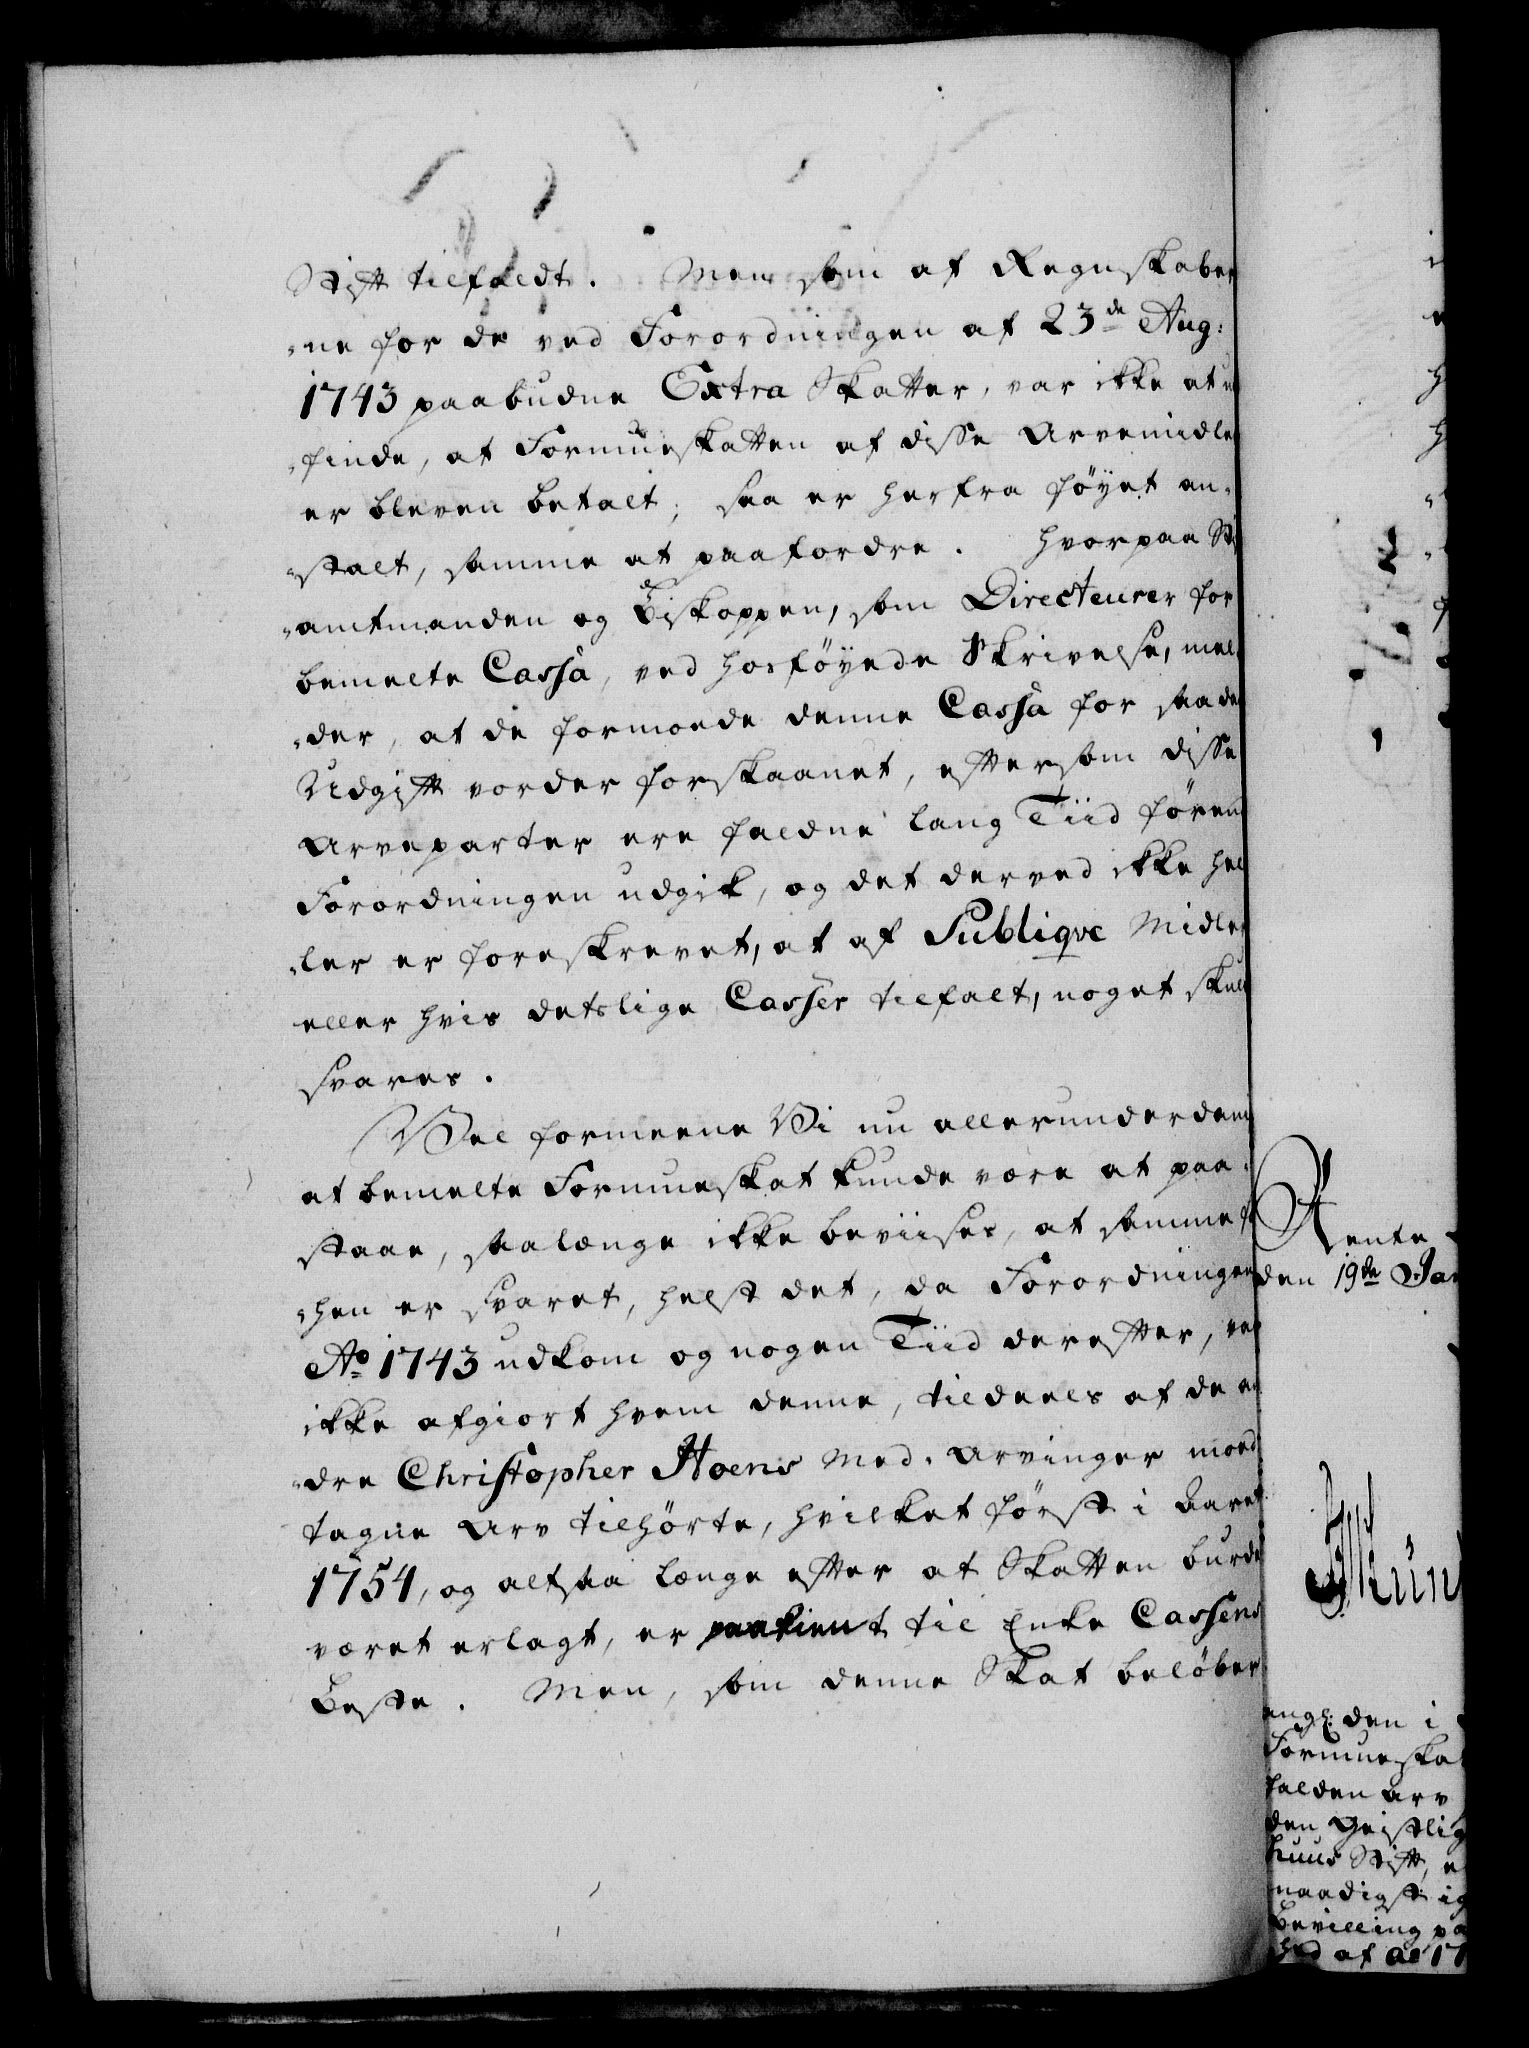 Stift tilfaldt. Men som af Regnskaber
„ne for de ved Forordningen af 23de Aug:
1743 paabudne Extra Skatter, var ikke at
„finde, at Formueskatten af disse Arvemidler
er bleven betalt; saa er herfra føyet an„
„stalt, samme at paafordre. Hvorpaa
„amtmanden og Biskoppen, som Directeurer for
bemelte Cassa, ved hosføyede Skrivelse, mel„
„der, at de formoede denne Cassa for saadan
Udgift vorder forskaanet, eftersom disse
Arveparter ere faldne lang Tiid førend
Forordningen udgik, og det derved ikke hel
„ler er foreskrevet, at af Publiqve Midler
eller hvis detslige Casser tilfalt, noget skulle
svares.
Vel formeene Vi nu allerunderdan
at bemelte Formueskat kunde være at paa„
staae, saalænge ikke beviises, at samme
„hen er svaret, helst det, da Forordningen
Ao 1743 udkom og nogen Tiid derefter, var
ikke afgiort hvem denne, tildeels af de an
„dre Christopher Hoens Med. Arvinger mod
tagne Arv tilhørte, hvilket først i Aaret
1754, og altsaa længe efter at Skatten burde
været erlagt, er paakient til Enke Cassens
Beste. Men, som denne Skat beløber
Rente
den 19de Jan
angl: den i
Formueska
falden Arv
den Geistlig
huus Stift, e
naadigst ig
Bevilling pa
hed af Ao 17